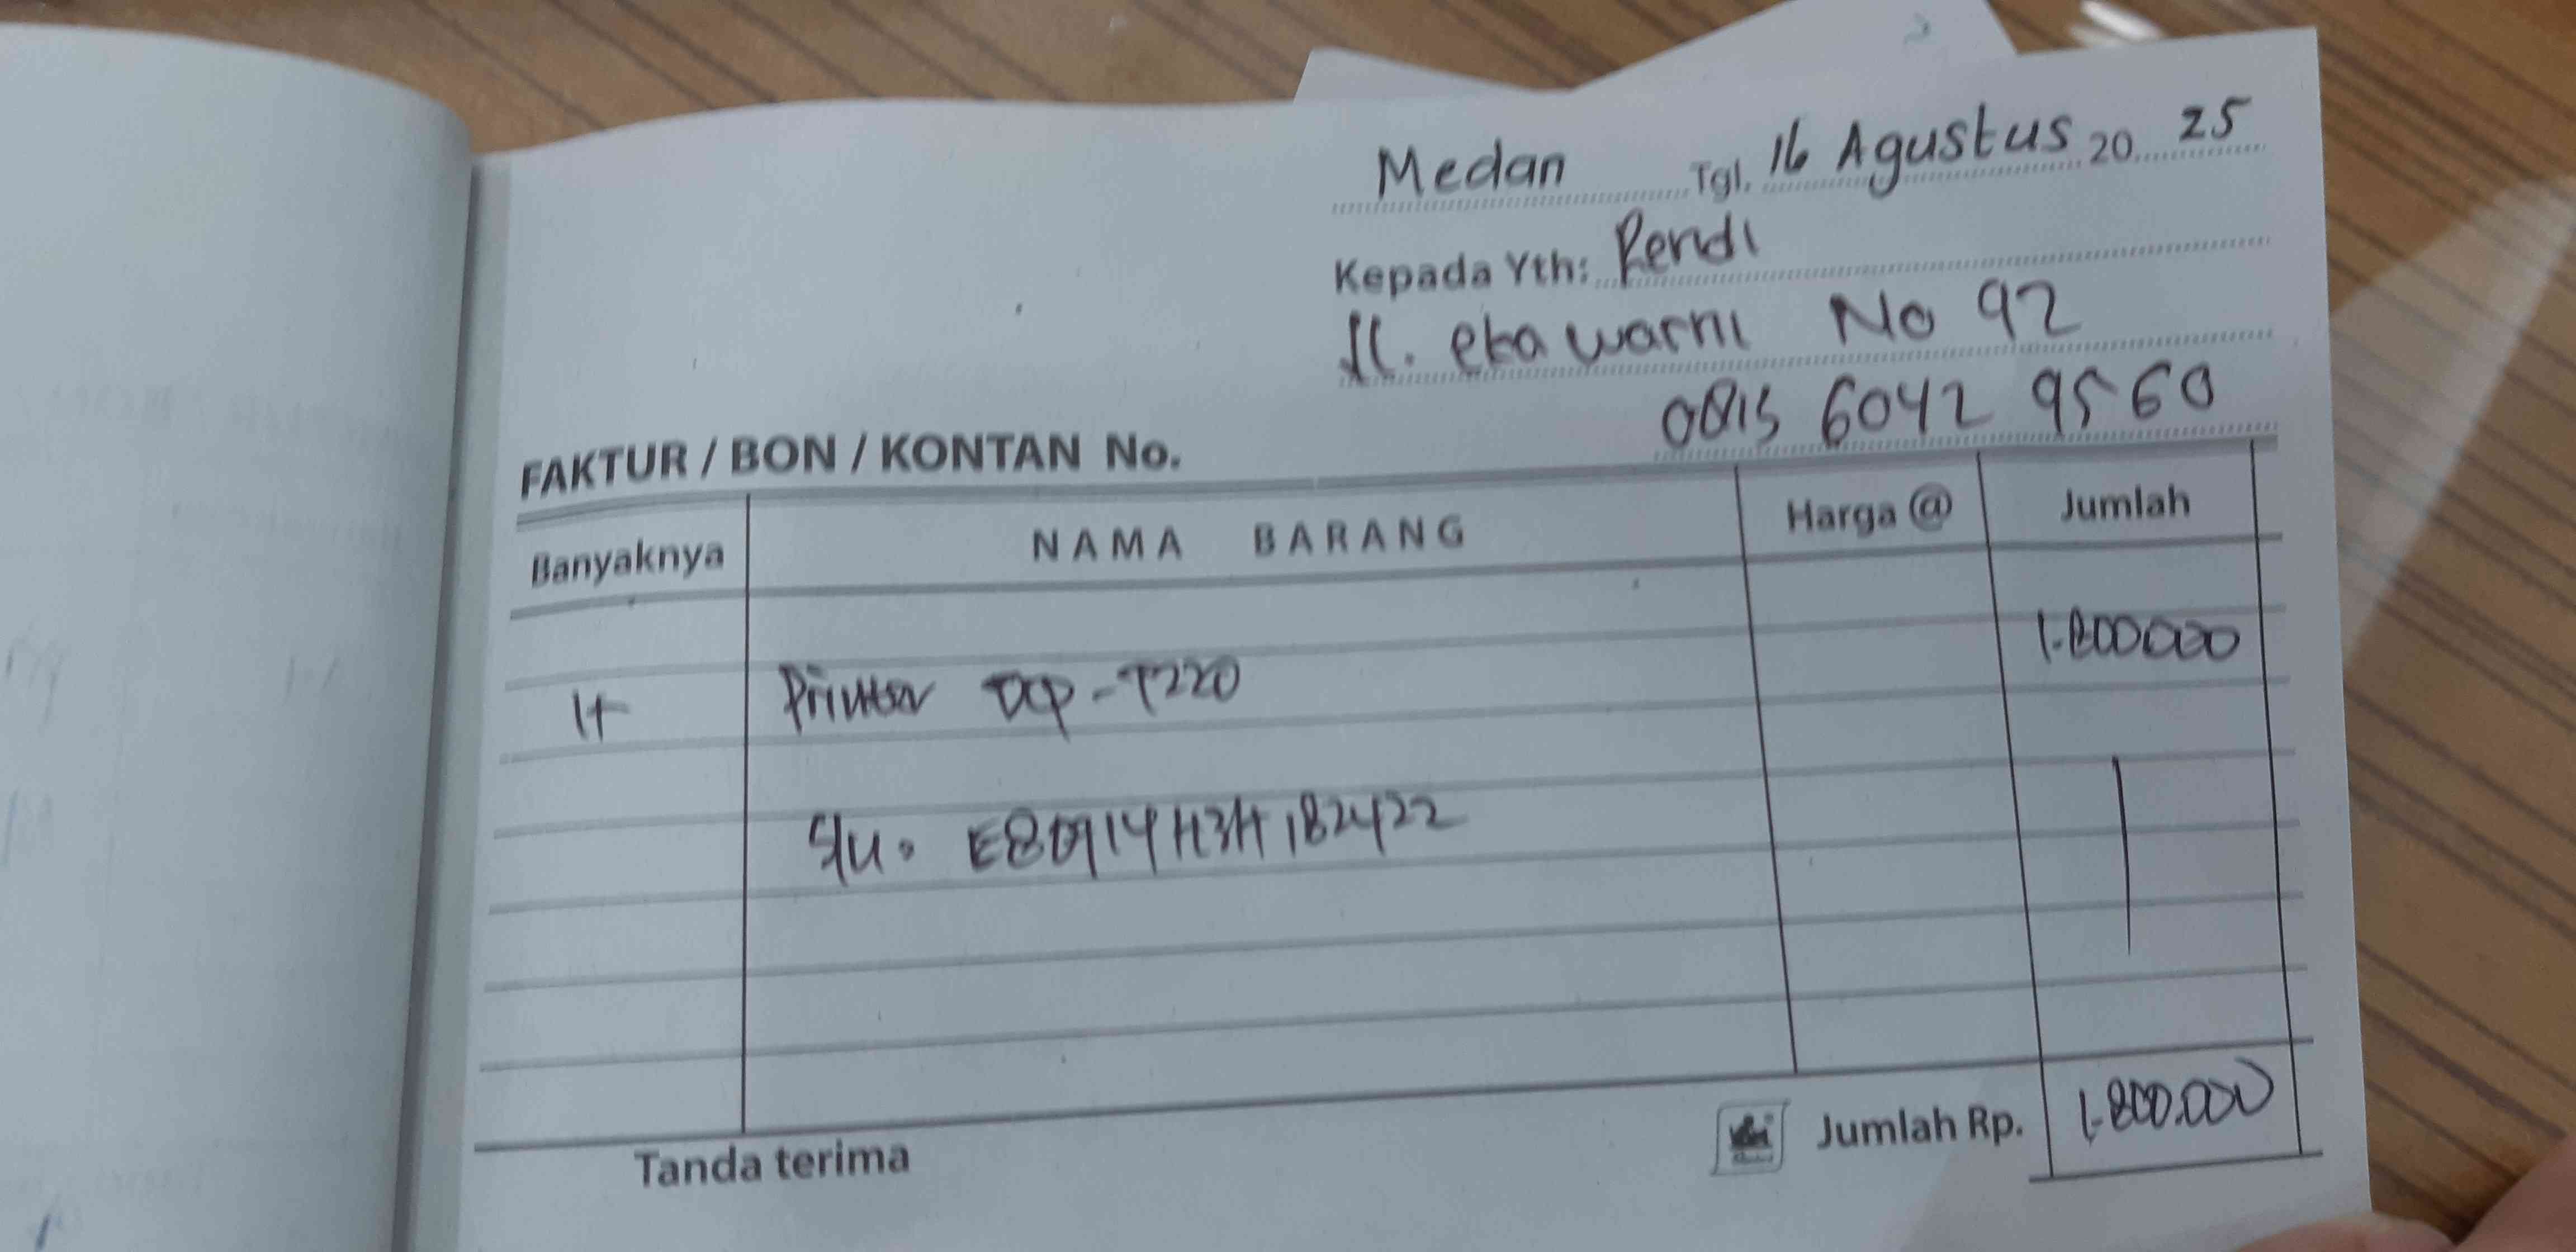 Medan Tgl. 16 Agustus 20 25
Kepada Yth: Rendi
Jl. eka warni No 92
0815 6042 9560
FAKTUR / BON / KONTAN No.
Banyaknya NAMA BARANG Harga @ Jumlah
1.800000
1+ Printer DCP-T220
S/N.
Tanda terima Jumlah Rp. 1.800.000